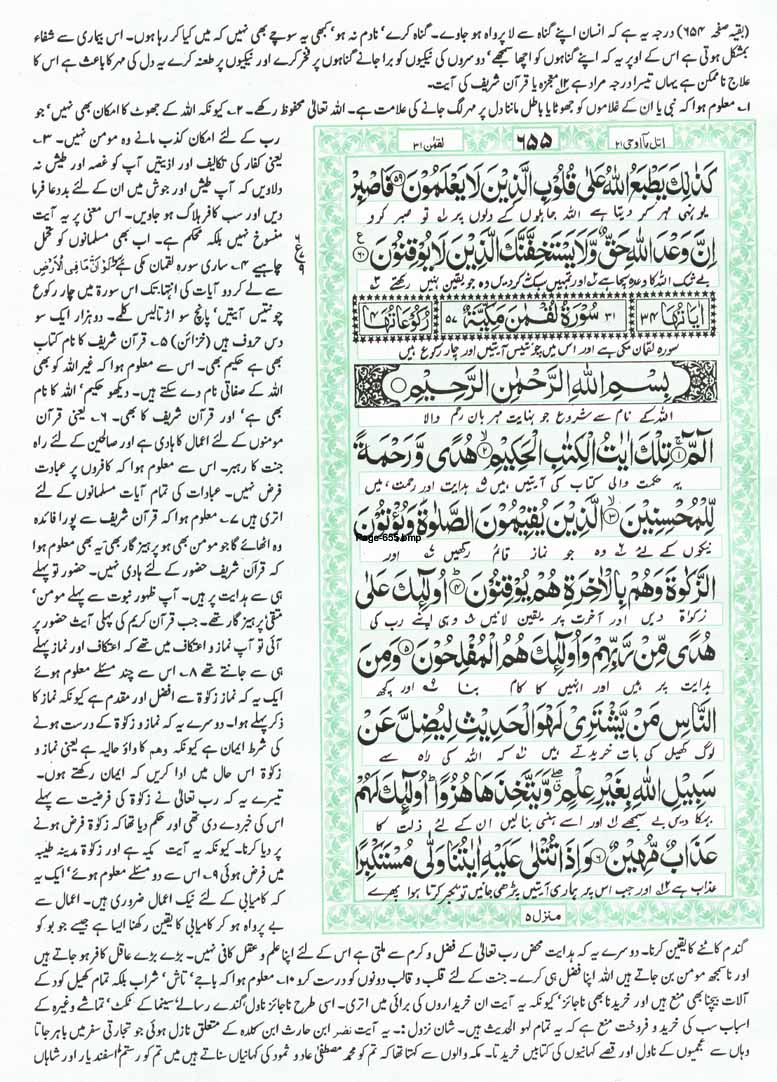 (بقیہ صفحہ ۶۵۴) درجہ یہ ہے کہ انسان اپنے گناہ سے لا پرواہ ہو جاوے۔ گناہ کرے' نادم نہ ہو' کبھی یہ سوچے بھی نہیں کہ میں کیا کر رہا ہوں۔ اس بیماری سے شفاء
بمشکل ہوتی ہے اس کے اوپر یہ کہ اپنے گناہوں کو اچھا سمجھے' دوسروں کی نیکیوں کو برا جانے گناہوں پر فخر کرے اور نیکیوں پر طعنہ کرے یہ دل کی مہر کا باعث ہے اس کا
علاج ناممکن ہے یہاں تیسرا درجہ مراد ہے ۱۲ معجزہ یا قرآن شریف کی آیت۔
۱۔ معلوم ہوا کہ نبی یا ان کے غلاموں کو جھوٹا یا باطل ماننا دل پر مہر لگ جانے کی علامت ہے۔ اللہ تعالیٰ محفوظ رکھے۔ ۲۔ کیونکہ اللہ کے جھوٹ کا امکان بھی نہیں' جو
رب کے لئے امکان کذب مانے وہ مومن نہیں۔ ۳۔
یعنی کفار کی تکالیف اور اذیتیں آپ کو غصہ اور طیش نہ
دلاویں کہ آپ طیش اور جوش میں ان کے لئے بددعا فرما
دیں اور سب کافر ہلاک ہو جاویں۔ اس معنی پر یہ آیت
منسوخ نہیں بلکہ محکم ہے۔ اب بھی مسلمانوں کو تحمل
چاہیے ۴۔ ساری سورہ لقمان مکی ہے وَلَوْ اَنَّ مَا فِی الْاَرْضِ
سے لے کر دو آیات کی انتہا تک اس سورۃ میں چار رکوع
چونتیس آیتیں' پانچ سو اڑتالیس کلمے۔ دو ہزار ایک سو
دس حروف ہیں (خزائن) ۵۔ قرآن شریف کا نام کتاب
بھی ہے حکیم بھی۔ اس سے معلوم ہوا کہ غیر اللہ کو بھی
اللہ کے صفاتی نام دے سکتے ہیں۔ دیکھو حکیم' اللہ کا نام
بھی ہے' اور قرآن شریف کا بھی۔ ۶۔ یعنی قرآن
مومنوں کے لئے اعمال کا ہادی ہے اور صالحین کے لئے راہ
جنت کا رہبر۔ اس سے معلوم ہوا کہ کافروں پر عبادت
فرض نہیں۔ عبادات کی تمام آیات مسلمانوں کے لئے
اتری ہیں ۷۔ معلوم ہوا کہ قرآن شریف سے پورا فائدہ
وہ اٹھائے گا جو مومن بھی ہو پرہیز گار بھی' یہ بھی معلوم ہوا
کہ قرآن شریف حضور کے لئے ہادی نہیں۔ حضور تو پہلے
ہی سے ہدایت پر ہیں۔ آپ ظہور نبوت سے پہلے مومن'
متقی' پرہیز گار تھے۔ جب قرآن کریم کی پہلی آیت حضور پر
آئی تو آپ نماز و اعتکاف میں تھے کہ اعتکاف اور نماز پہلے
ہی سے جانتے تھے ۸۔ اس سے چند مسئلے معلوم ہوئے
ایک یہ کہ نماز زکوٰۃ سے افضل اور مقدم ہے کیونکہ نماز کا
ذکر پہلے ہوا۔ دوسرے یہ کہ نماز و زکوٰۃ کے درست ہونے
کی شرط ایمان ہے کیونکہ وھم کا واؤ حالیہ ہے یعنی نماز و
زکوٰۃ اس حال میں ادا کریں کہ ایمان رکھتے ہوں۔
تیسرے یہ کہ رب تعالیٰ نے زکوٰۃ کی فرضیت سے پہلے
اس کی خبر دے دی تھی اور حکم دیا تھا کہ زکوٰۃ فرض ہونے
پر دیا کرنا۔ کیونکہ یہ آیت مکیہ ہے اور زکوٰۃ مدینہ طیبہ
میں فرض ہوئی ۹۔ اس سے دو مسئلے معلوم ہوئے' ایک یہ
کہ کامیابی کے لئے نیک اعمال ضروری ہیں۔ اعمال سے
بے پرواہ ہو کر کامیابی کا یقین رکھنا ایسا ہے جیسے جو بو کو
اتل مآ اوحی ۲۱
۶۵۵
لقمٰن ۳۱
كَذٰلِكَ يَطْبَعُ اللّٰهُ عَلٰى قُلُوْبِ الَّذِيْنَ لَا يَعْلَمُوْنَ ۵۹ فَاصْبِرْ
یوں ہی مہر کر دیتا ہے اللہ جاہلوں کے دلوں پر ۱ تو صبر کرو
اِنَّ وَعْدَ اللّٰهِ حَقٌّ وَّلَا يَسْتَخِفَّنَّكَ الَّذِيْنَ لَا يُوْقِنُوْنَ ۶۰
بے شک اللہ کا وعدہ سچا ہے ۲ اور تمہیں سبک نہ کر دیں وہ جو یقین نہیں رکھتے ۳
ع ۶ ۹
اٰیَاتُهَا ۳۴
۳۱ سُوْرَةُ لُقْمٰنَ مَكِّيَّةٌ ۵۷
رُكُوْعَاتُهَا ۴
سورہ لقمان مکی ہے اور اس میں چونتیس آیتیں اور چار رکوع ہیں
بِسْمِ اللّٰهِ الرَّحْمٰنِ الرَّحِيْمِ
اللہ کے نام سے شروع جو نہایت مہربان رحم والا
الٓمّٓ ۱ تِلْكَ اٰيٰتُ الْكِتٰبِ الْحَكِيْمِ ۲ هُدًى وَّرَحْمَةً
یہ حکمت والی کتاب کی آیتیں ہیں ۵ ہدایت اور رحمت ہیں
لِّلْمُحْسِنِيْنَ ۳ الَّذِيْنَ يُقِيْمُوْنَ الصَّلٰوةَ وَيُؤْتُوْنَ
Page-655.bmp
نیکوں کے لئے وہ جو نماز قائم رکھیں اور
الزَّكٰوةَ وَهُمْ بِالْاٰخِرَةِ هُمْ يُوْقِنُوْنَ ۴ اُولٰٓئِكَ عَلٰى
زکوٰۃ دیں اور آخرت پر یقین لائیں وہی اپنے رب کی
هُدًى مِّنْ رَّبِّهِمْ وَاُولٰٓئِكَ هُمُ الْمُفْلِحُوْنَ ۵ وَمِنَ
ہدایت پر ہیں اور انہیں کا کام بنا اور کچھ
النَّاسِ مَنْ يَّشْتَرِيْ لَهْوَ الْحَدِيْثِ لِيُضِلَّ عَنْ
لوگ کھیل کی بات خریدتے ہیں کہ اللہ کی راہ سے
سَبِيْلِ اللّٰهِ بِغَيْرِ عِلْمٍ وَّيَتَّخِذَهَا هُزُوًا اُولٰٓئِكَ لَهُمْ
بہکا دیں بے سمجھے اور اسے ہنسی بنا لیں ان کے لئے ذلت کا
عَذَابٌ مُّهِيْنٌ ۶ وَاِذَا تُتْلٰى عَلَيْهِ اٰيٰتُنَا وَلّٰى مُسْتَكْبِرًا
عذاب ہے اور جب اس پر ہماری آیتیں پڑھی جائیں تو تکبر کرتا ہوا پھرے
منزل ۵
گندم کاٹنے کا یقین کرنا۔ دوسرے یہ کہ ہدایت محض رب تعالیٰ کے فضل و کرم سے ملتی ہے اس کے لئے اپنا علم و عقل کافی نہیں۔ بڑے بڑے عاقل کافر ہو جاتے ہیں
اور نا سمجھ مومن بن جاتے ہیں اللہ اپنا فضل ہی کرے۔ جنت کے لئے قلب و قالب دونوں کو درست کرو ۱۰۔ معلوم ہوا کہ باجے' تاش' شراب بلکہ تمام کھیل کود کے
آلات بیچنا بھی منع ہیں اور خریدنا بھی ناجائز' کیونکہ یہ آیت ان خریداروں کی برائی میں اتری۔ اسی طرح ناجائز ناول' گندے رسالے' سینما کے ٹکٹ' تماشے وغیرہ کے
اسباب سب کی خرید و فروخت منع ہے کہ یہ تمام لہو الحدیث ہیں۔ شان نزول :۔ یہ آیت نضر ابن حارث ابن کلدہ کے متعلق نازل ہوئی جو تجارتی سفر میں باہر جاتا
وہاں سے عجمیوں کے ناول اور قصے کہانیوں کی کتابیں خریدتا۔ مکہ والوں سے کہتا تھا کہ تم کو محمد مصطفیٰ عاد و ثمود کی کہانیاں سناتے ہیں میں تم کو رستم' اسفند یار اور شاہاں